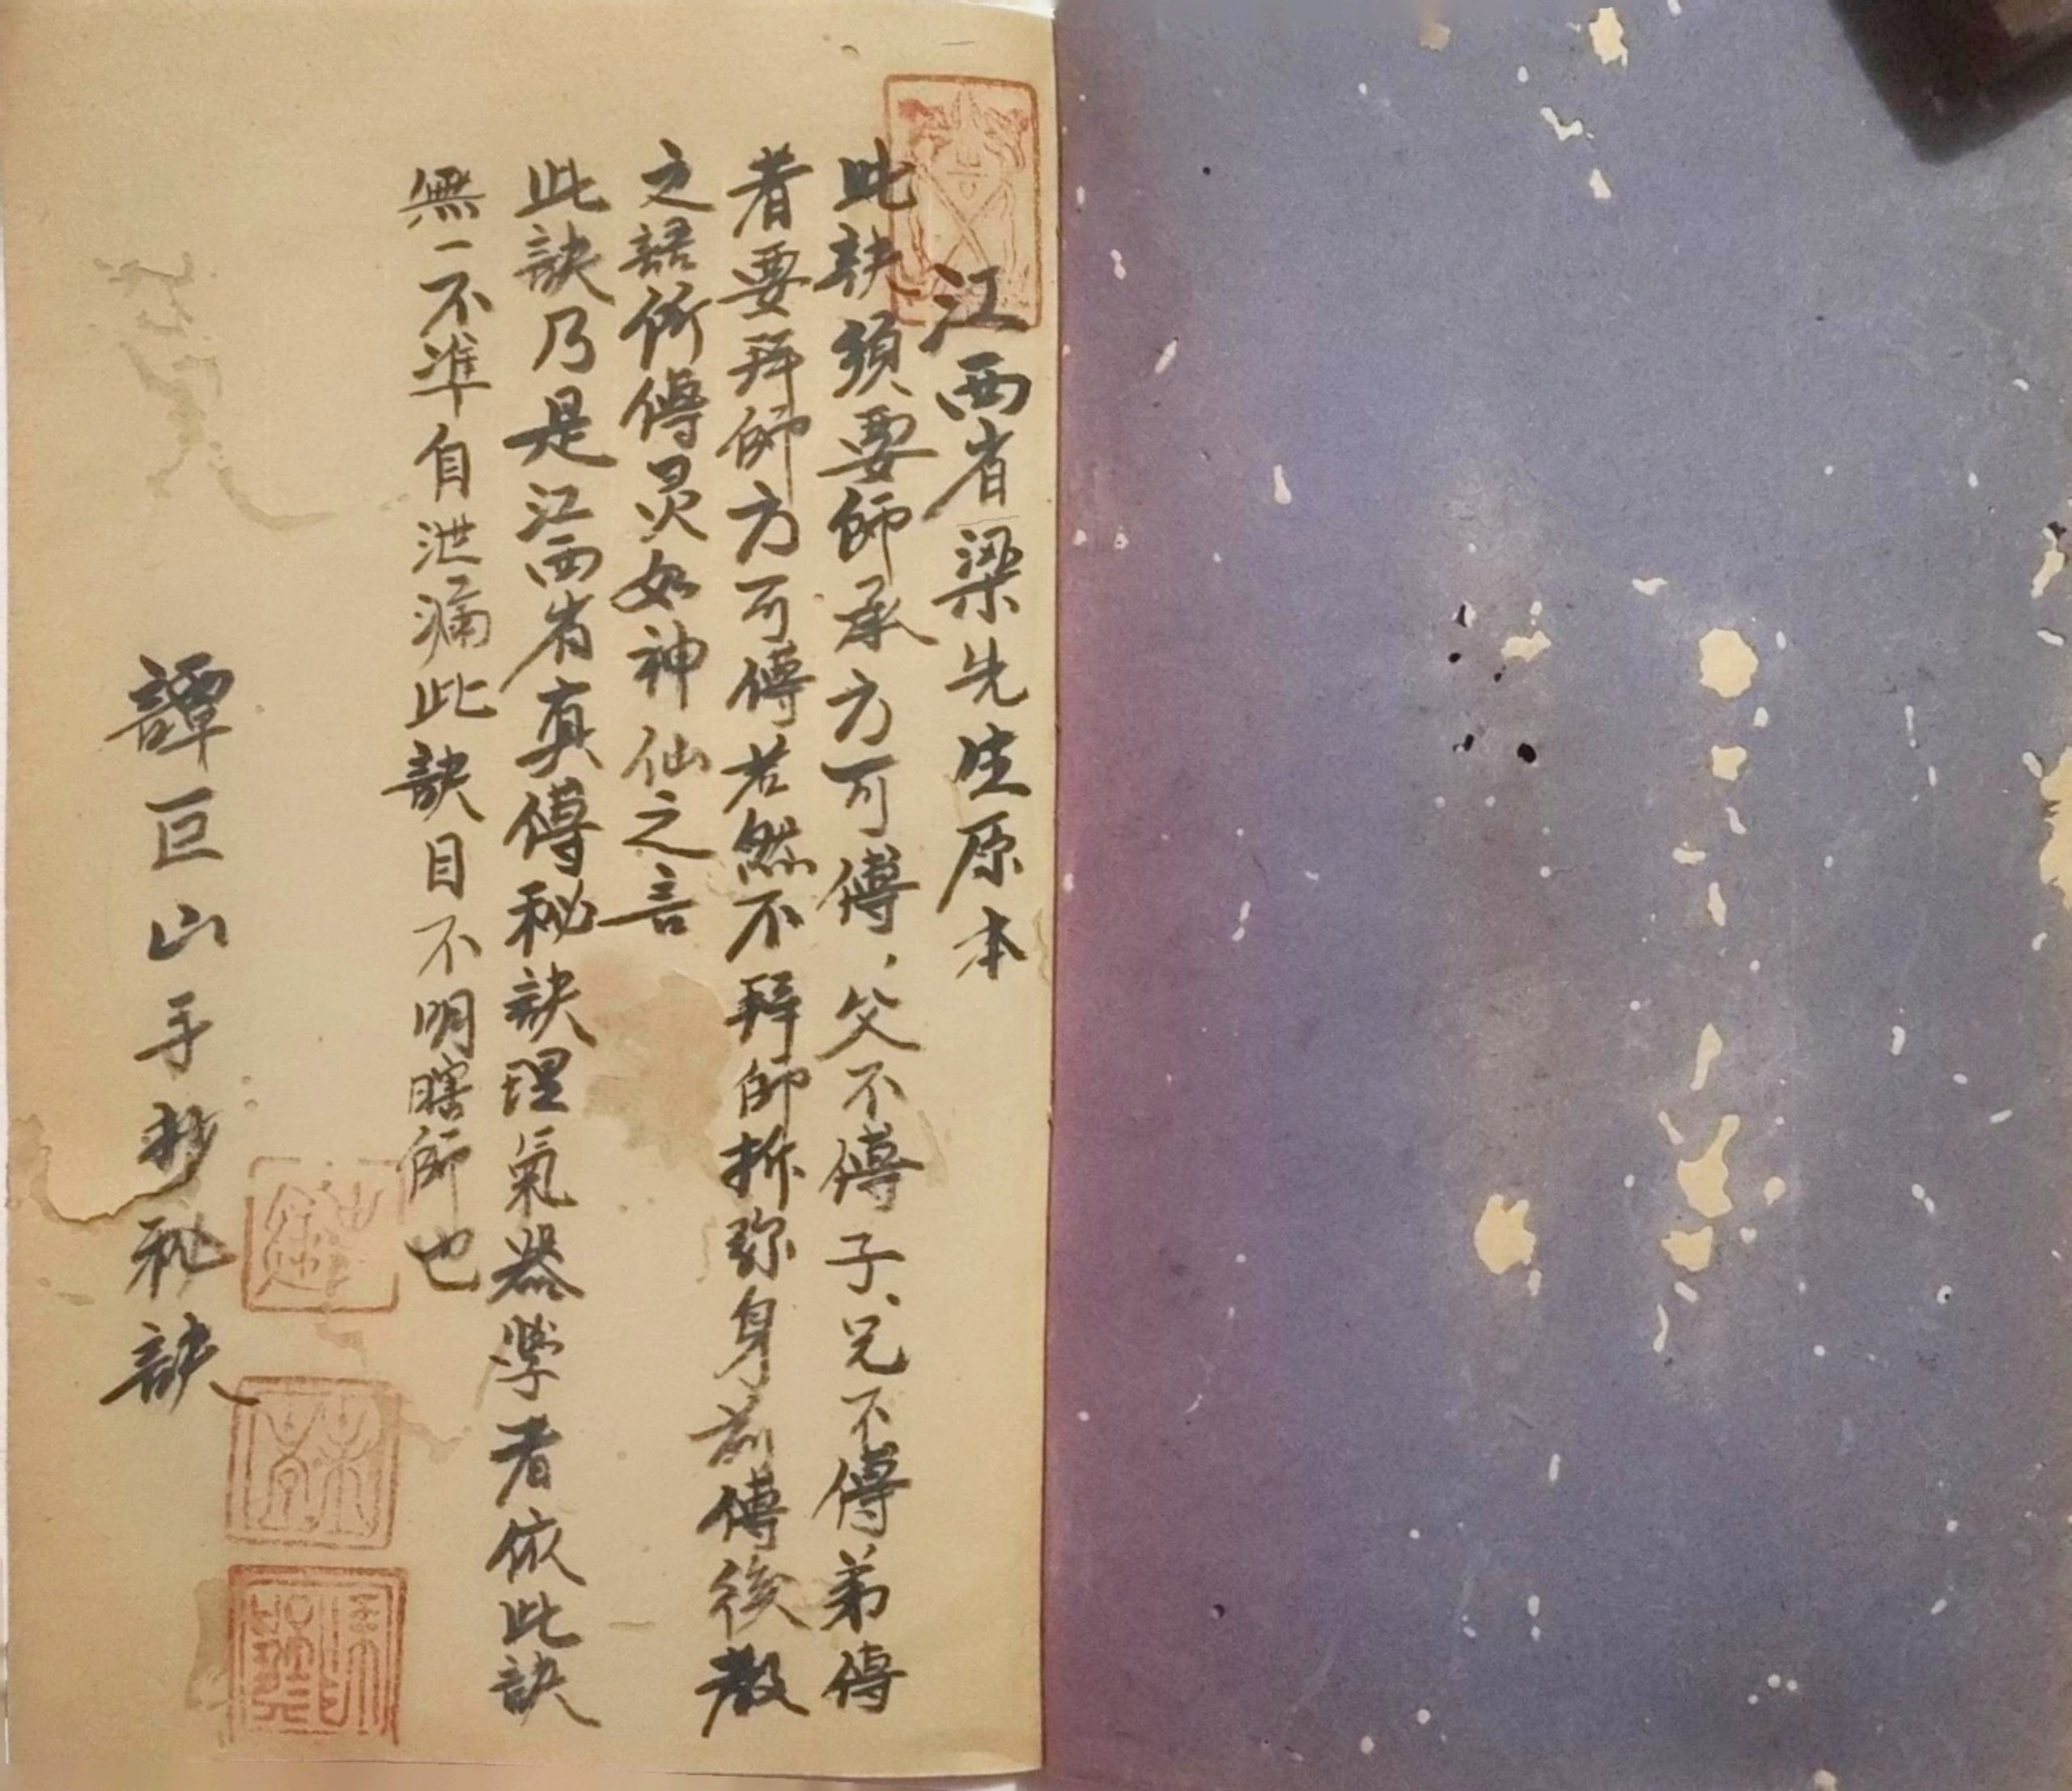 江西省梁先生原本
此訣須要師承方可傳、父不傳子、兄不傳弟傳
者要拜師方可傳若然不拜師拆弥身前傳後教
之語所傳灵如神仙之言
此訣乃是江西省真傳秘訣理氣器學者依此訣
無一不準自泄漏此訣目不明瞎師也
譚巨山手抄秘訣